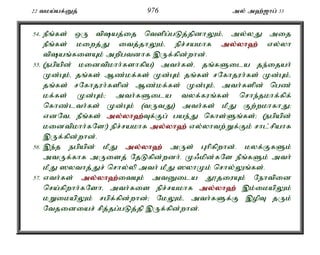 22 வமய்யக்னுத் 976 அல் அஹ்ஜாப் 33
54. நீங்கள் ஒரு விஷயத்தை வெளிப்படுத்தினாலும், அல்லது அதை
நீங்கள் மறைத்து வைத்தாலும், நிச்சயமாக அல்லாஹ் எல்லா
விஷயங்களையும் அறிபவனாக இருக்கின்றான்.
55. (நபியின் மனைவிமார்களாகிய) அவர்கள், தங்களுடைய தந்தையர்
முன்பும், தங்கள் ஆண்மக்கள் முன்பும் தங்கள் சகோதரர்கள் முன்பும்,
தங்கள் சகோதரர்களின் ஆண்மக்கள் முன்பும், அவர்களின் பெண்
மக்கள் முன்பும்; அவர்களுடைய வலக்கரங்கள் சொந்தமாக்கிக்
கொண்டவர்கள் முன்பும் (வருவது) அவர்கள் மீது குற்றமாகாது;
எனவே, நீங்கள் அல்லாஹ்வுக்குப் பயந்து கொள்ளுங்கள்; (நபியின்
மனைவிமார்களே!) நிச்சயமாக அல்லாஹ் எல்லாவற்றுக்கும் சாட்சியாக
இருக்கின்றான்.
56. இந்த நபியின் மீது அல்லாஹ் அருள் புரிகிறான். மலக்குகளும்
அவருக்காக அருளைத் தேடுகின்றனர். முஃமின்களே நீங்களும் அவர்
மீது ஸலவாத்துச் சொல்லி அவர் மீது ஸலாமும் சொல்லுங்கள்.
57. எவர்கள் அல்லாஹ்வையும் அவனுடைய தூதரையும் நோவினை
செய்கிறார்களோ, அவர்களை நிச்சயமாக அல்லாஹ் இம்மையிலும்
மறுமையிலும் சபிக்கின்றான்; மேலும், அவர்களுக்கு இழிவு தரும்
வேதனையைச் சித்தப்படுத்தி இருக்கின்றான்.